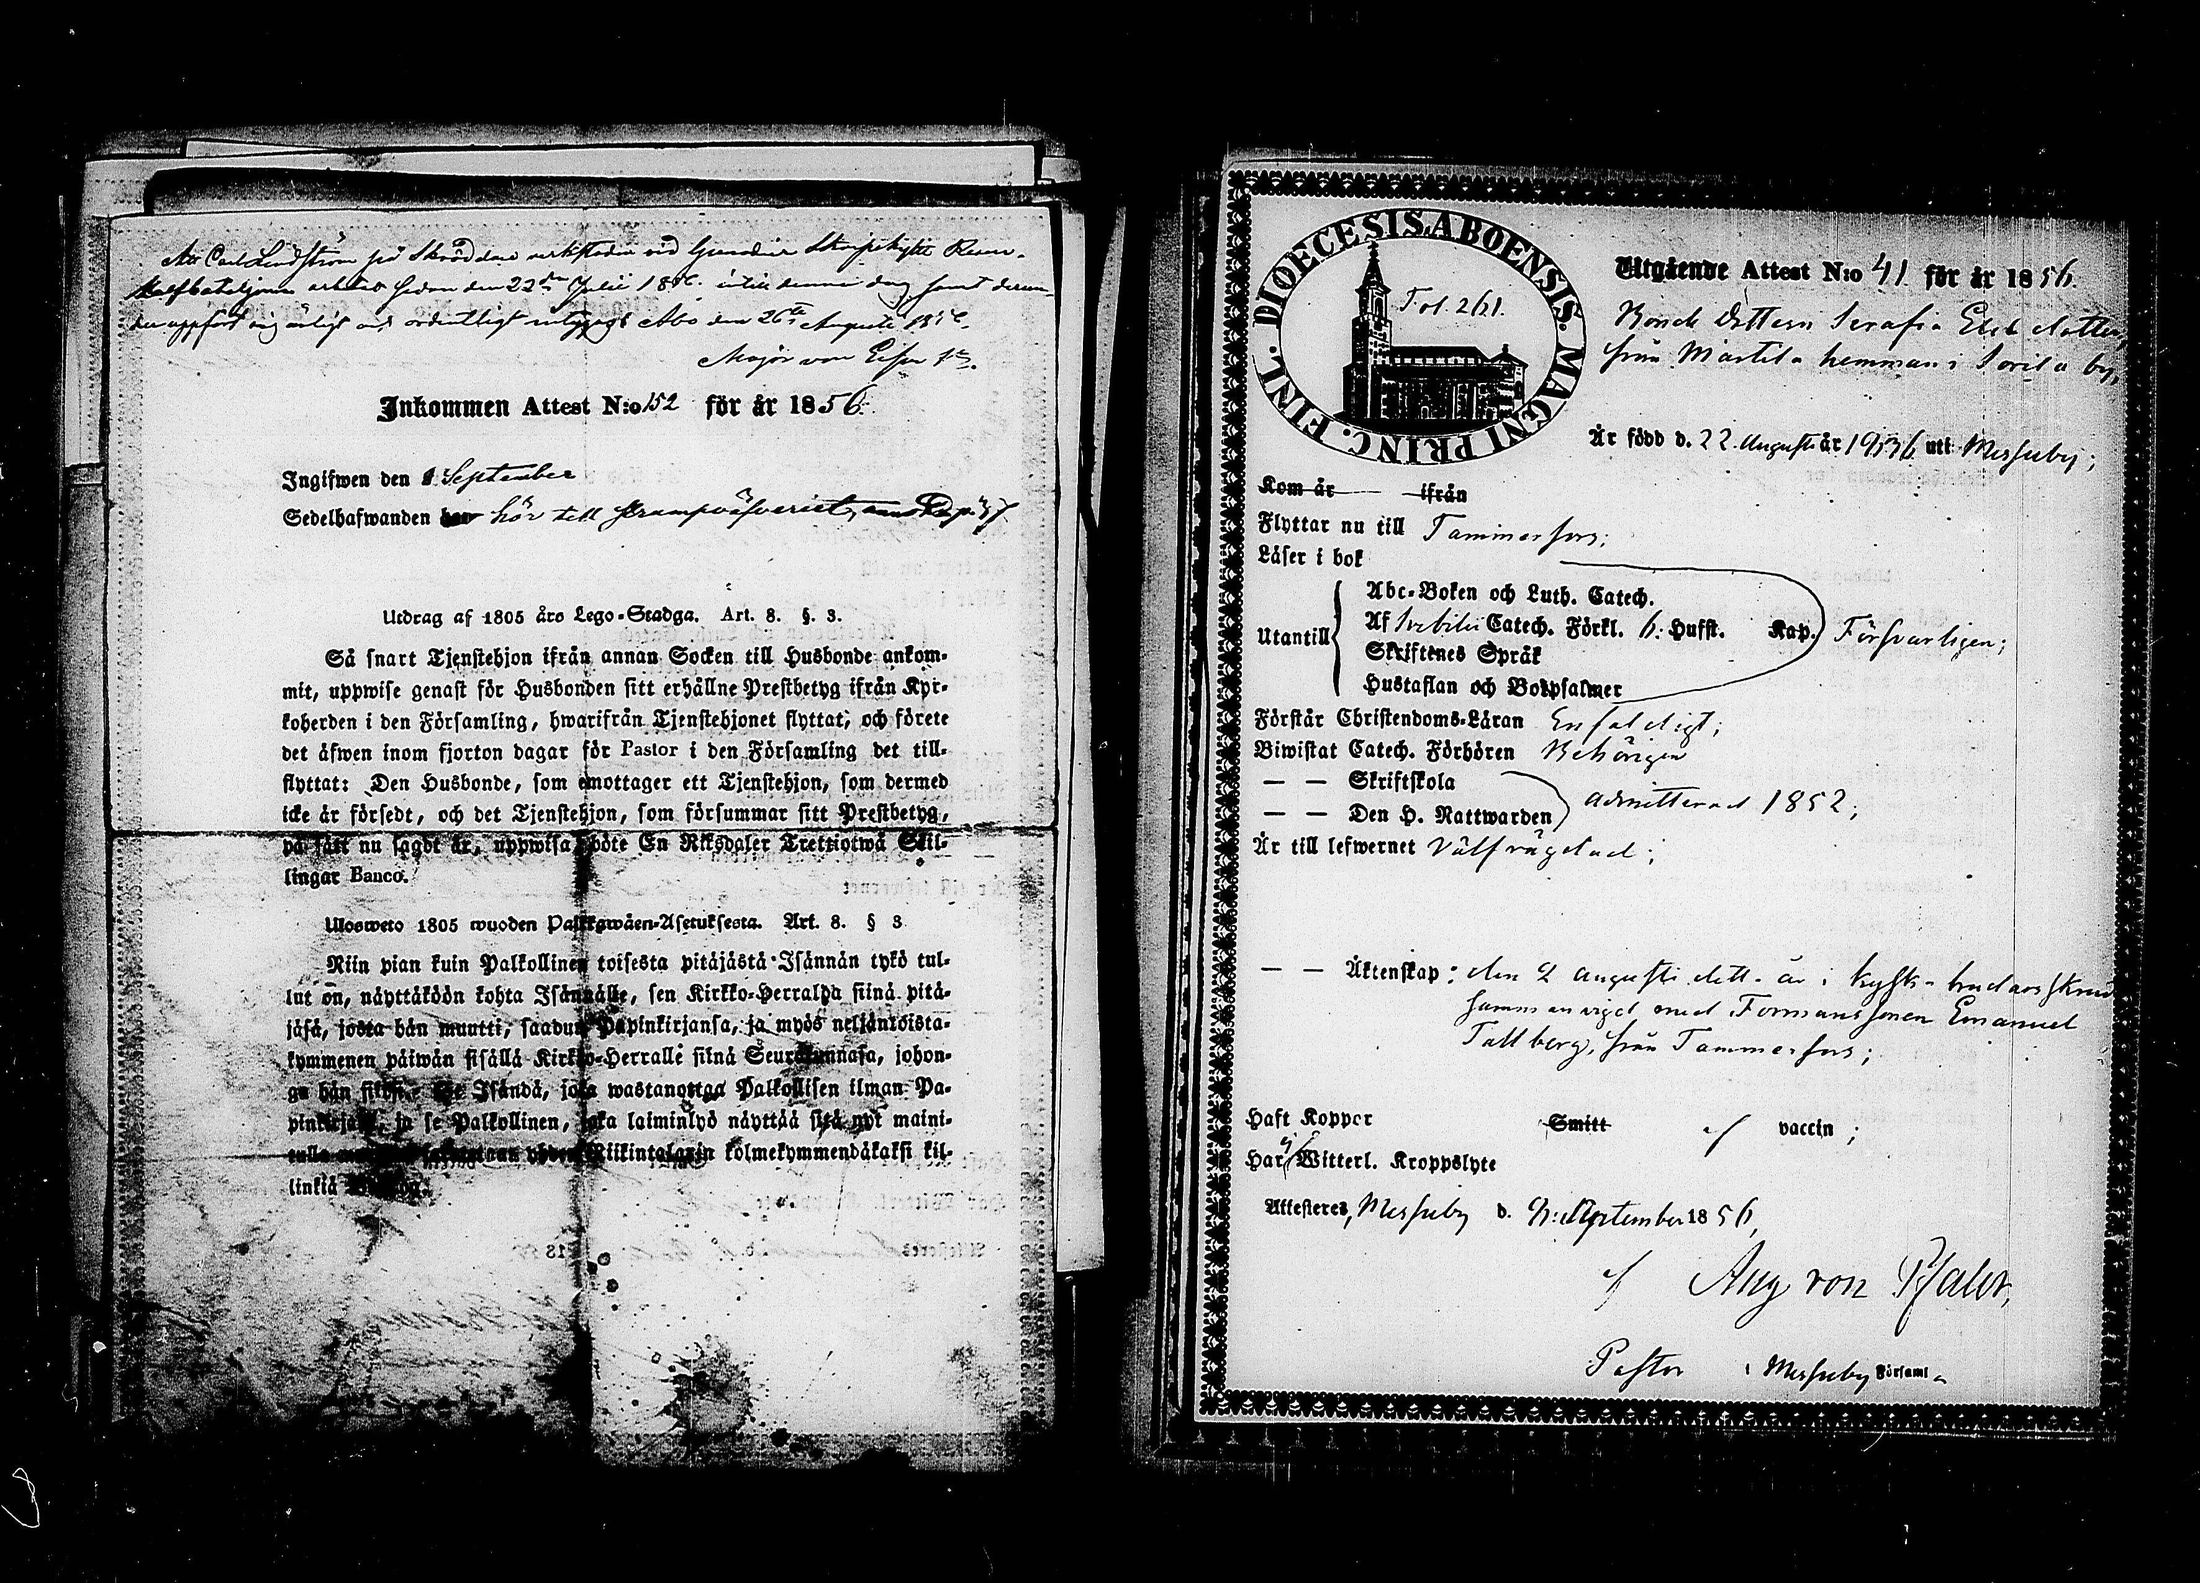 Att Carl Lindström på Skräddare verkstaden vid Grenadier Skarpskytte Reserv-
Halfbataljonen arbetat sedan den 22dra Julii 1856 intill denna dag samt derun-
der uppfört sig ärligt och ordentligt intygas Åbo den 26te Augusti 1856.
Major von
Inkommen Attest N:o 152 för år 1856.
Ingifwen den 1 September
Sedelhafwanden har hör till Strumpväfveriet,
Utdrag af 1805 års Lego-Stadga. Art. 8. §. 3.
Så snart Tjenstehjon ifrån annan Socken till Husbonde ankom-
mit, uppwise genast för Husbonden sitt erhållne Prestbetyg ifrån Kyr-
koherden i den Församling, hwarifrån Tjenstehjonet flyttat, och förete
det äfwen inom fjorton dagar för Pastor i den Församling det till-
flyttat: Den Husbonde, som emottager ett Tjenstehjon, som dermed
icke är försedt, och det Tjenstehjon, som försummar sitt Prestbetyg,
på sätt nu sagdt är, uppwisa, böte En Riksdaler Trettiotwå Skil-
lingar Banco.
Ulosweto 1805 wuoden Palkkawäen-Asetuksesta. Art. 8. § 3
Niin pian kuin Palkollinen toisesta pitäjästä Isännän tykö tul-
lut on, näyttäköön kohta Isännälle, sen Kirkko-Herralda siinä pitä-
jäsä, josta hän muutti, saadun Papinkirjansa, ja myös neljäntoista-
kymmenen päiwän sisällä Kirkko-Herralle siinä Seurakunnasa, johon-
ga hän siirtyi. Se Isändä, joka wastanottaa Palkollisen ilman Pa-
pinkirjata, ja se Palkollinen, joka laiminlyö näyttää sitä nyt maini-
Riikintalarin kolmekymmendäkaksi kil-
linkiä
DIOECESIS ABOENSIS. MAGNI PRINC. FINL.
Fol. 261.
Utgående Attest N:o 41 för år 1856.
Bonde Dottern Serafia
från Marttila hemman i Sorila by,
Är född d. 22 Augusti år 1836 uti Messuby;
Kom år ifrån
Flyttar nu till Tammerfors;
Läser i bok
Utantill
Abc-Boken och Luth. Catech.
Af Svebilii Catech. Förkl. 6. Hufst. Kap.
Skriftenes Språk
Hustaflan och Botpsalmer
Försvarligen;
Förstår Christendoms-Läran Enfaldigt;
Biwistat Catech. Förhören Behörigen
— — Skriftskola
— — Den H. Nattwarden
admitterad 1852;
Är till lefwernet Välfrägdad;
— — Äktenskap: den 2 Augusti dett. år i kyrk- brudarskrud
sammanvigd med Formanssonen Emanuel
Tallberg, från Tammerfors;
Haft Koppor Smitt vaccin;
Har ej Witterl. Kroppslyte
Attesteres, Messuby d. September 1856,
Aug von Pfaler,
Pastor i Messuby Församl